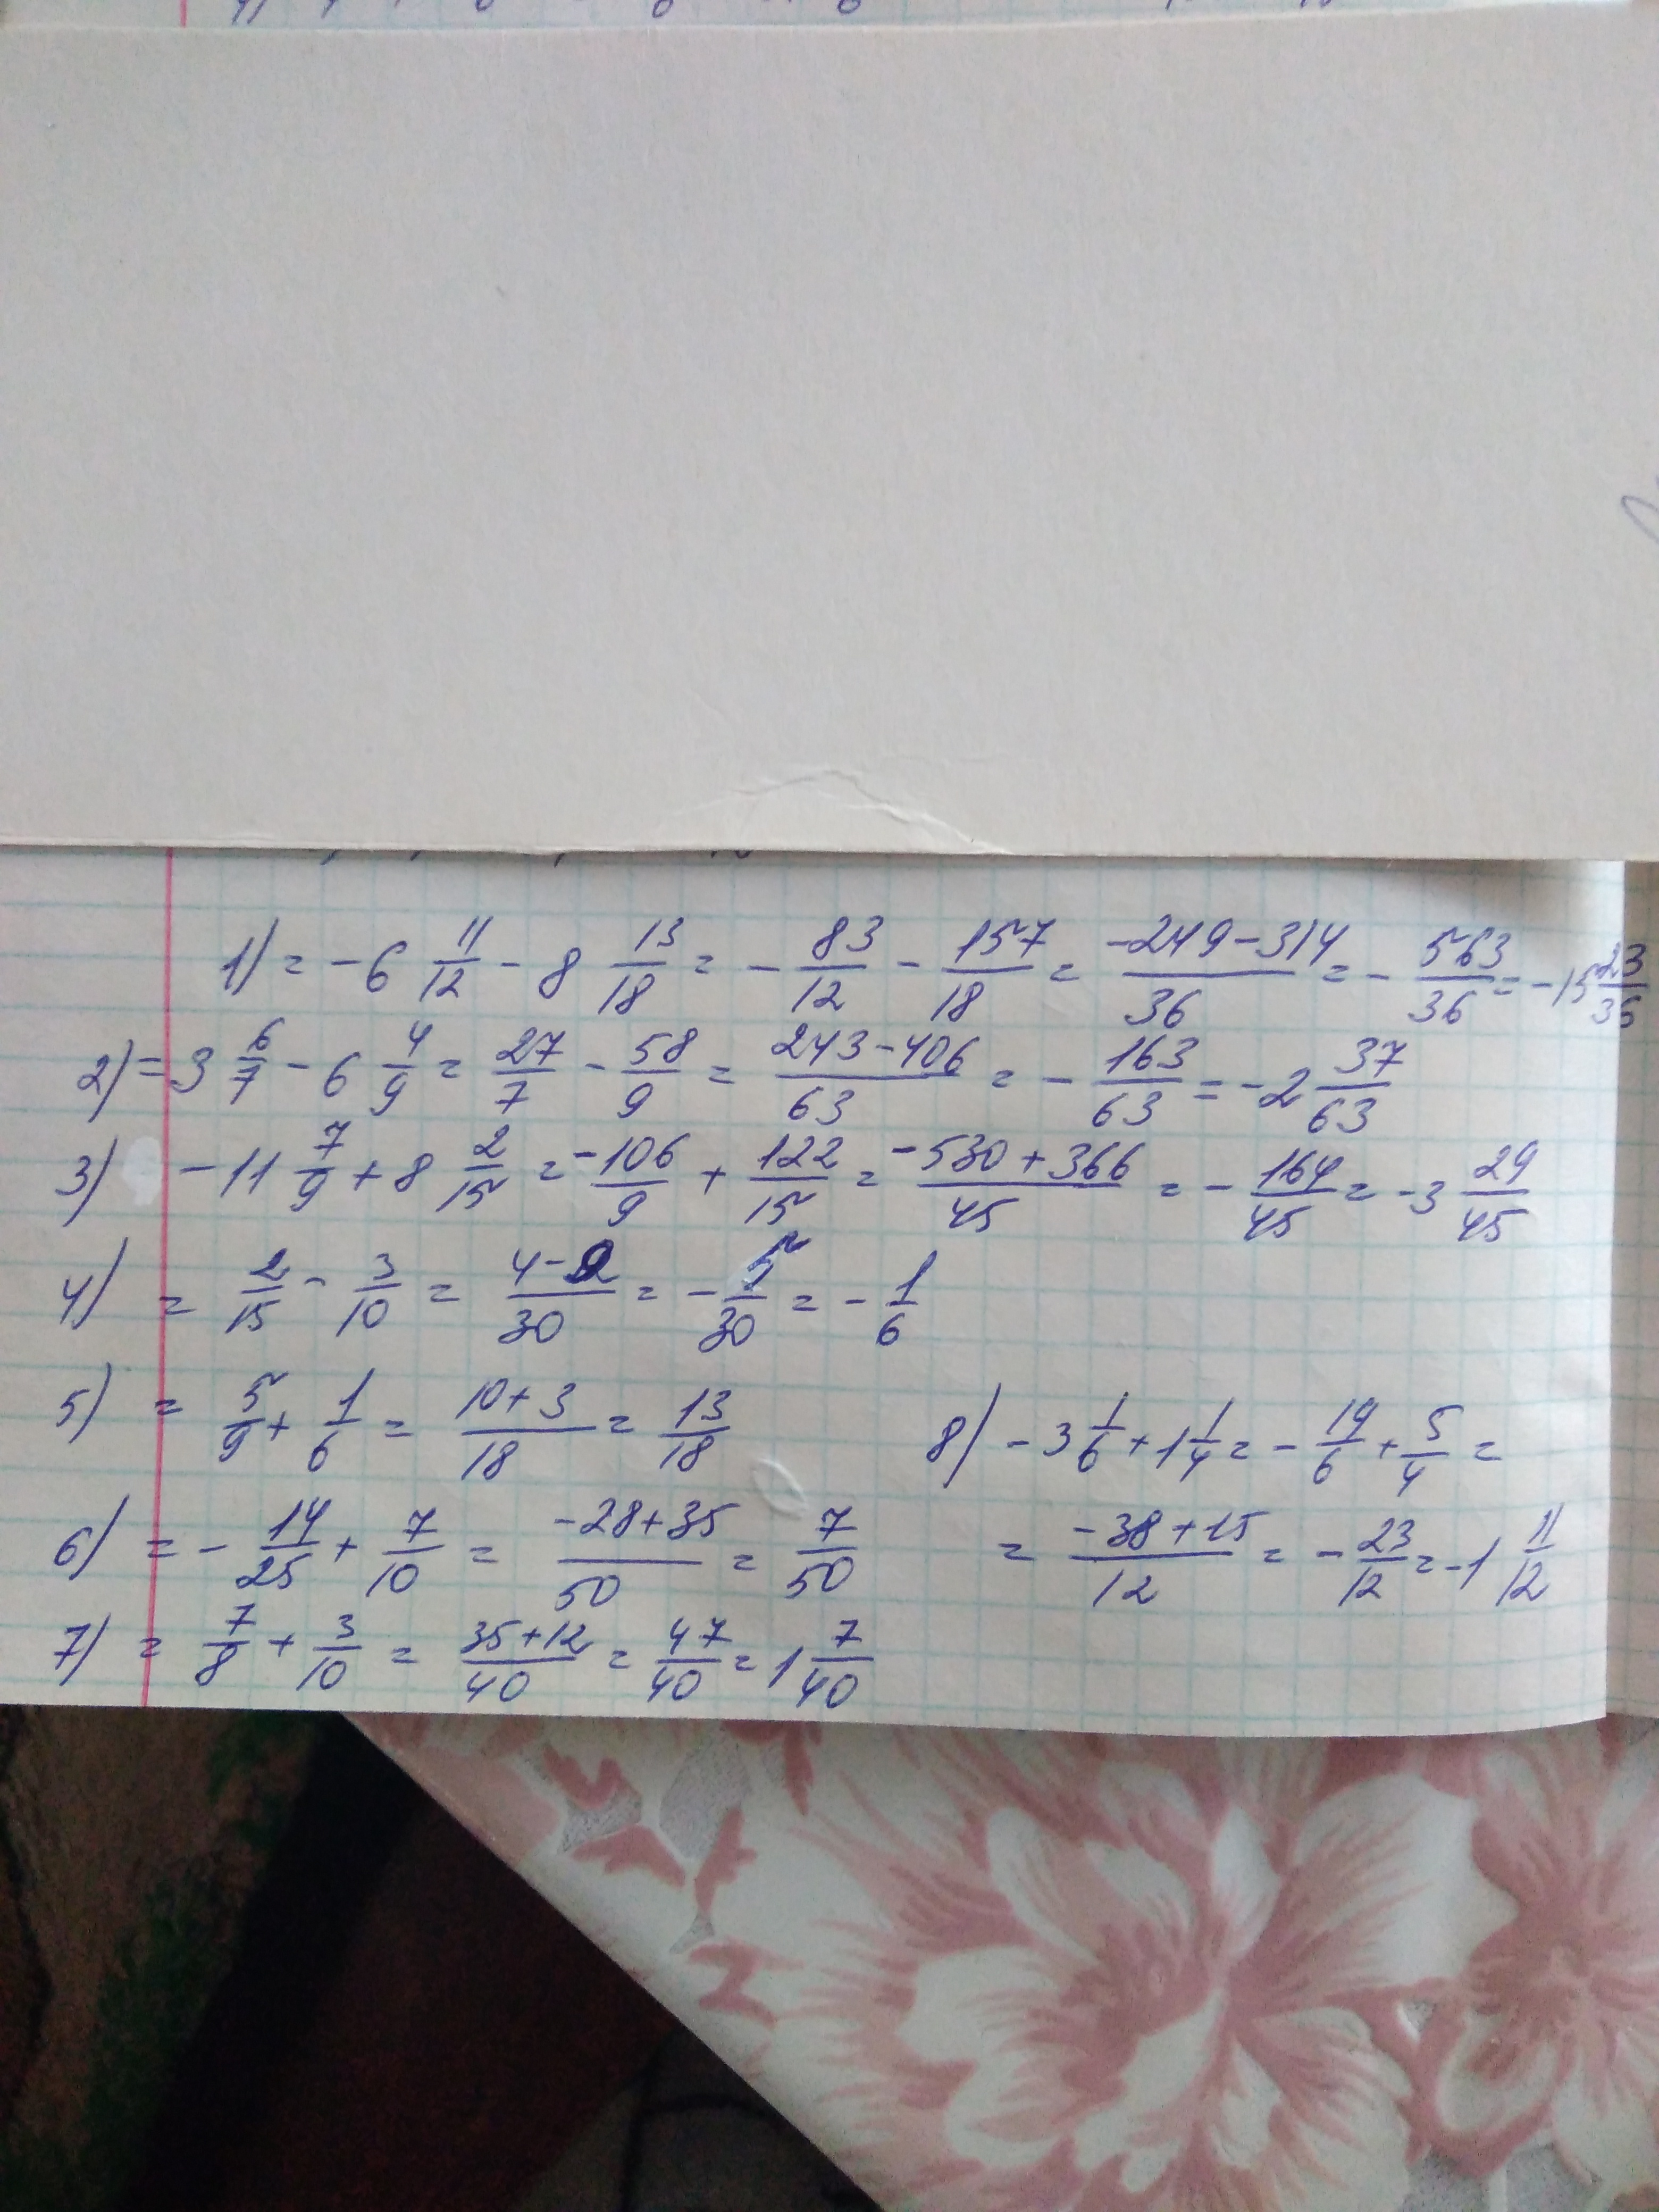 1) = -6 11/12 - 8 13/18 = - 83/12 - 157/18 = (-249-314)/36 = - 563/36 = -15 23/36
2) = 3 6/7 - 6 4/9 = 27/7 - 58/9 = (243-406)/63 = - 163/63 = -2 37/63
3) -11 7/9 + 8 2/15 = -106/9 + 122/15 = (-530+366)/45 = - 164/45 = -3 29/45
4) = 2/15 - 3/10 = (4-9)/30 = - 5/30 = - 1/6
5) = 5/9 + 1/6 = (10+3)/18 = 13/18
6) = - 14/25 + 7/10 = (-28+35)/50 = 7/50
7) = 7/8 + 3/10 = (35+12)/40 = 47/40 = 1 7/40
8) -3 1/6 + 1 1/4 = - 19/6 + 5/4 =
= (-38+15)/12 = - 23/12 = -1 11/12